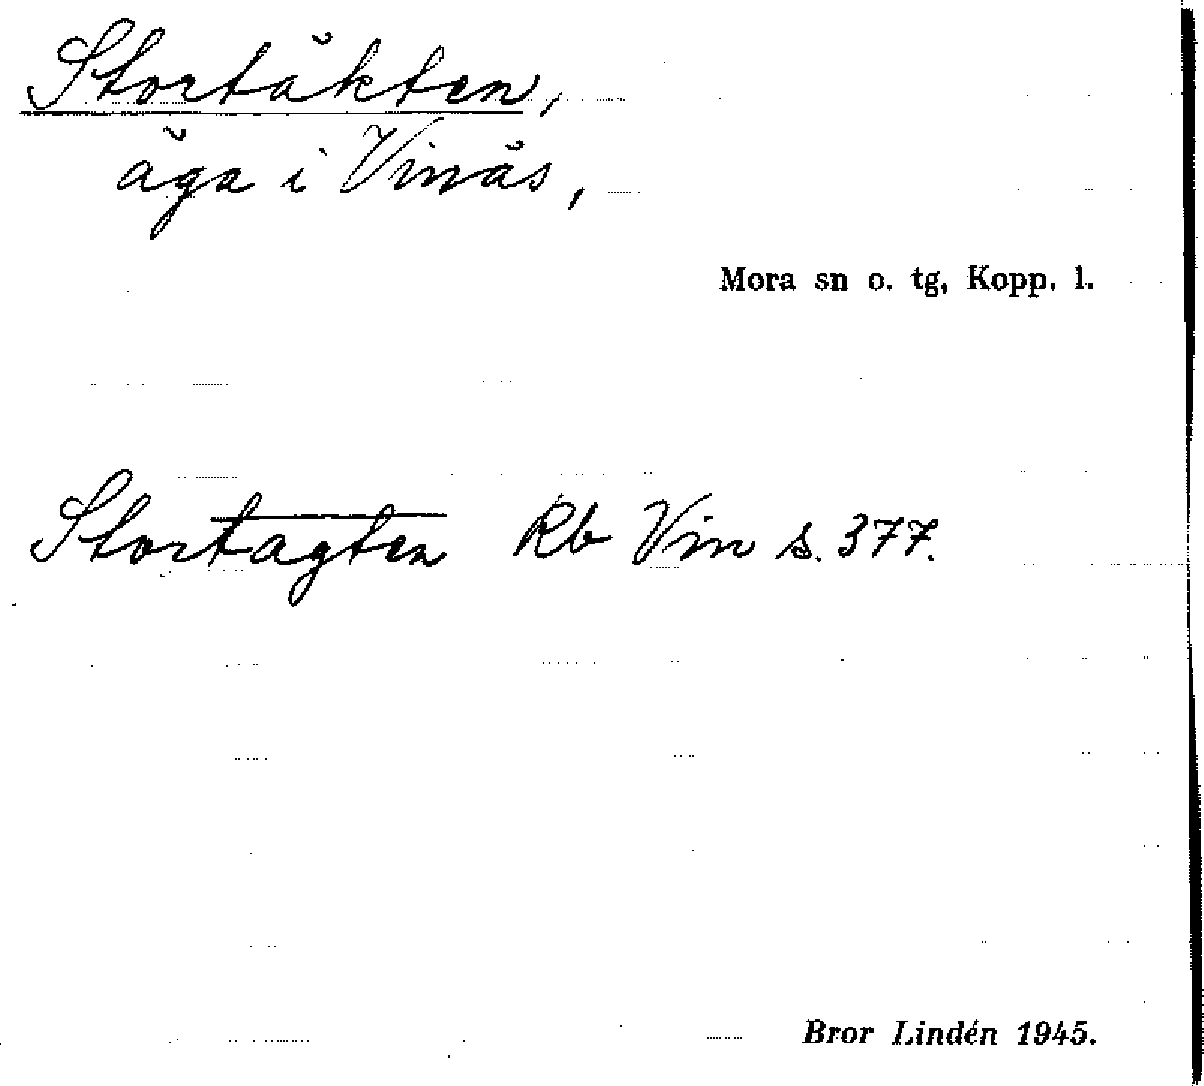 Stortäkten,
äga i Vinäs,
Mora sn o. tg, Kopp. l.
Stortagten Rb Vin s. 377.
Bror Lindén 1945.